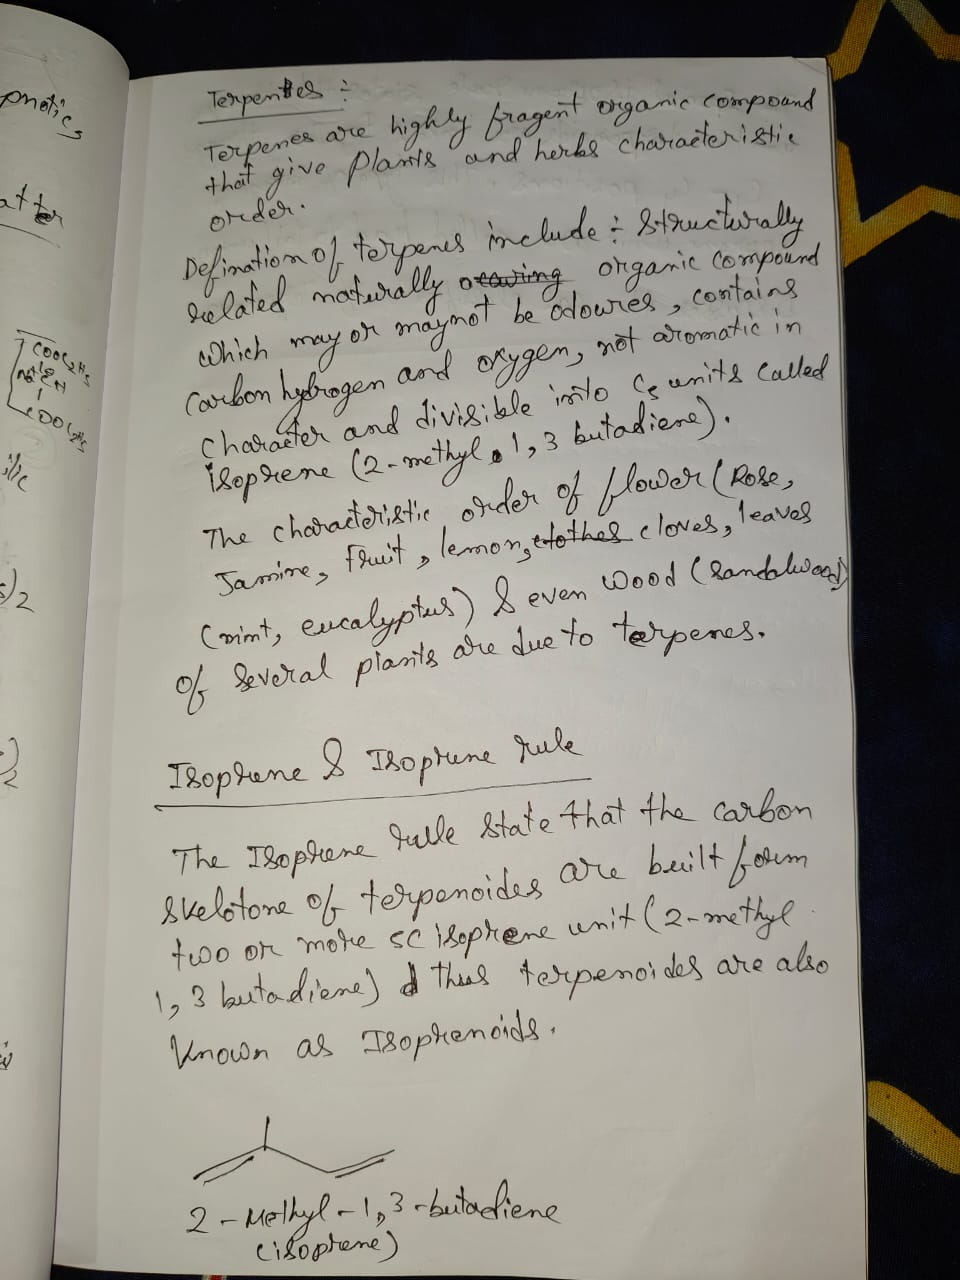 Terpentes :-
Terpenes are highly fragent organic compound
that give Plants and herbs characteristic
order.
Defination of terpenes include :- Structurally
related naturally organic compound
which may or maynot be odoures, contains
carbon hybrogen and oxygen, not aromatic in
character and divisible into C5 units called
isoprene (2-methyl 1,3 butadiene).
The characteristic order of flower (Rose,
Jasmine, fruit, lemon, cloves, leaves
(mint, eucalyptus) & even wood (Sandalwood)
of several plants are due to terpenes.
Isoprene & Isoprene rule
The Isoprene rulle state that the carbon
skelotone of terpenoides are built form
two or more 5C isoprene unit (2-methyl
1,3 butadiene) thus terpenoides are also
known as Isoprenoids.
2-Methyl-1,3-butadiene
(isoprene)
atter
COOC2H5
COOC2H5